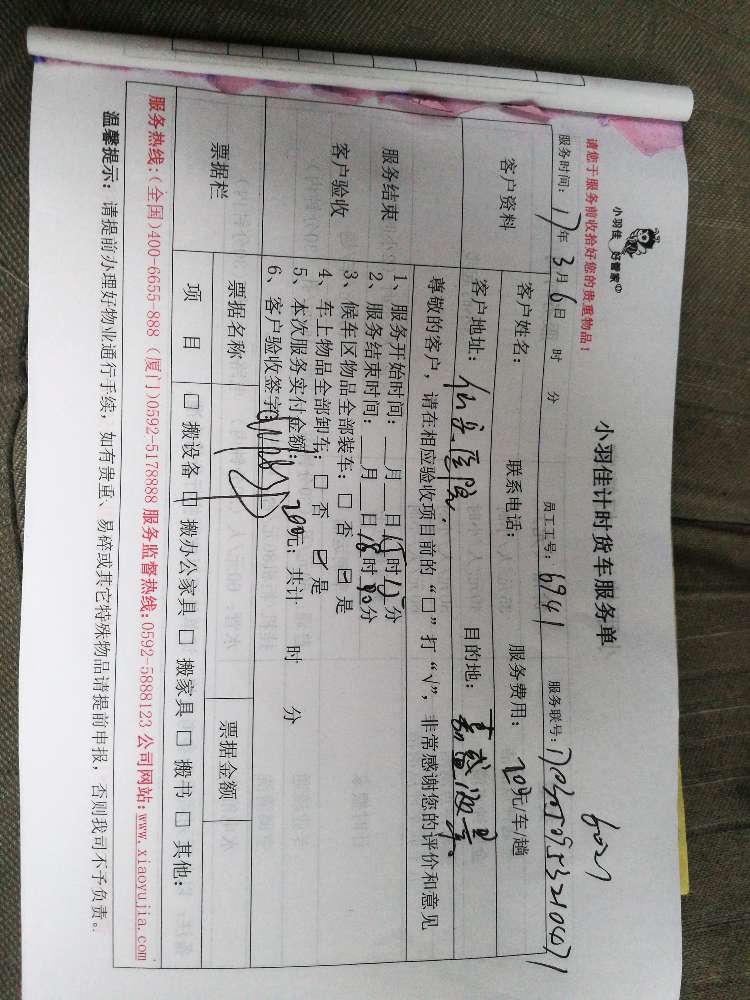 小羽佳 好管家
请您于服务前收拾好您的贵重物品！
小羽佳计时货车服务单
6021
服务时间：17年3月6日 时 分 员工工号：6941 服务联号：
客户资料
客户姓名： 联系电话： 服务费用：200元/车/趟
客户地址： 医院 目的地：
服务结束
客户验收
尊敬的客户，请在相应验收项目前的“□”打“√”，非常感谢您的评价和意见
1、服务开始时间：__月__日15时10分
2、服务结束时间：__月__日18时00分
3、候车区物品全部装车：□ 否 ☑ 是
4、车上物品全部卸车：□ 否 ☑ 是
5、本次服务实付金额：200元；共计 时 分
6、客户验收签字：
票据栏
票据名称 票据金额
项 目 □ 搬设备 □ 搬办公家具 □ 搬家具 □ 搬书 □ 其他：
服务热线：(全国)400-6655-888 (厦门)0592-5178888 服务监督热线：0592-5888123 公司网站：www.xiaoyujia.com
温馨提示：请提前办理好物业通行手续，如有贵重、易碎或其它特殊物品请提前申报，否则我司不予负责。